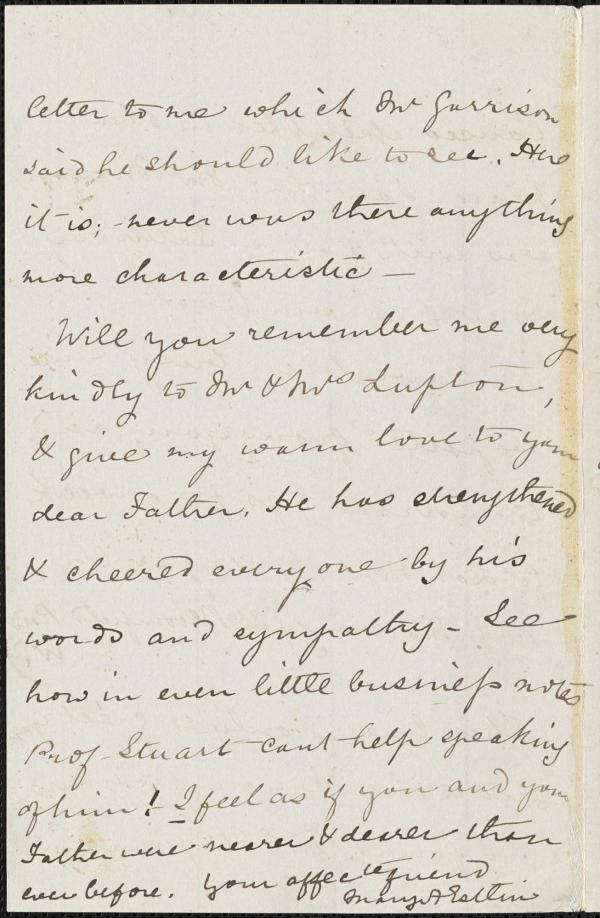 letter to me which Mr Garrison
said he should like to see. Here
it is; - never was there anything
more characteristic -
Will you remember me very
kindly to Mr & Mrs Lupton,
& give my warm love to your
dear Father. He has strengthened
& cheered every one by his
words and sympathy - See
how in even little businefs notes
Prof. Stuart cant help speaking
of him! - I feel as if you and your
Father were nearer & dearer than
ever before. Your affecte friend
Mary A Estlin